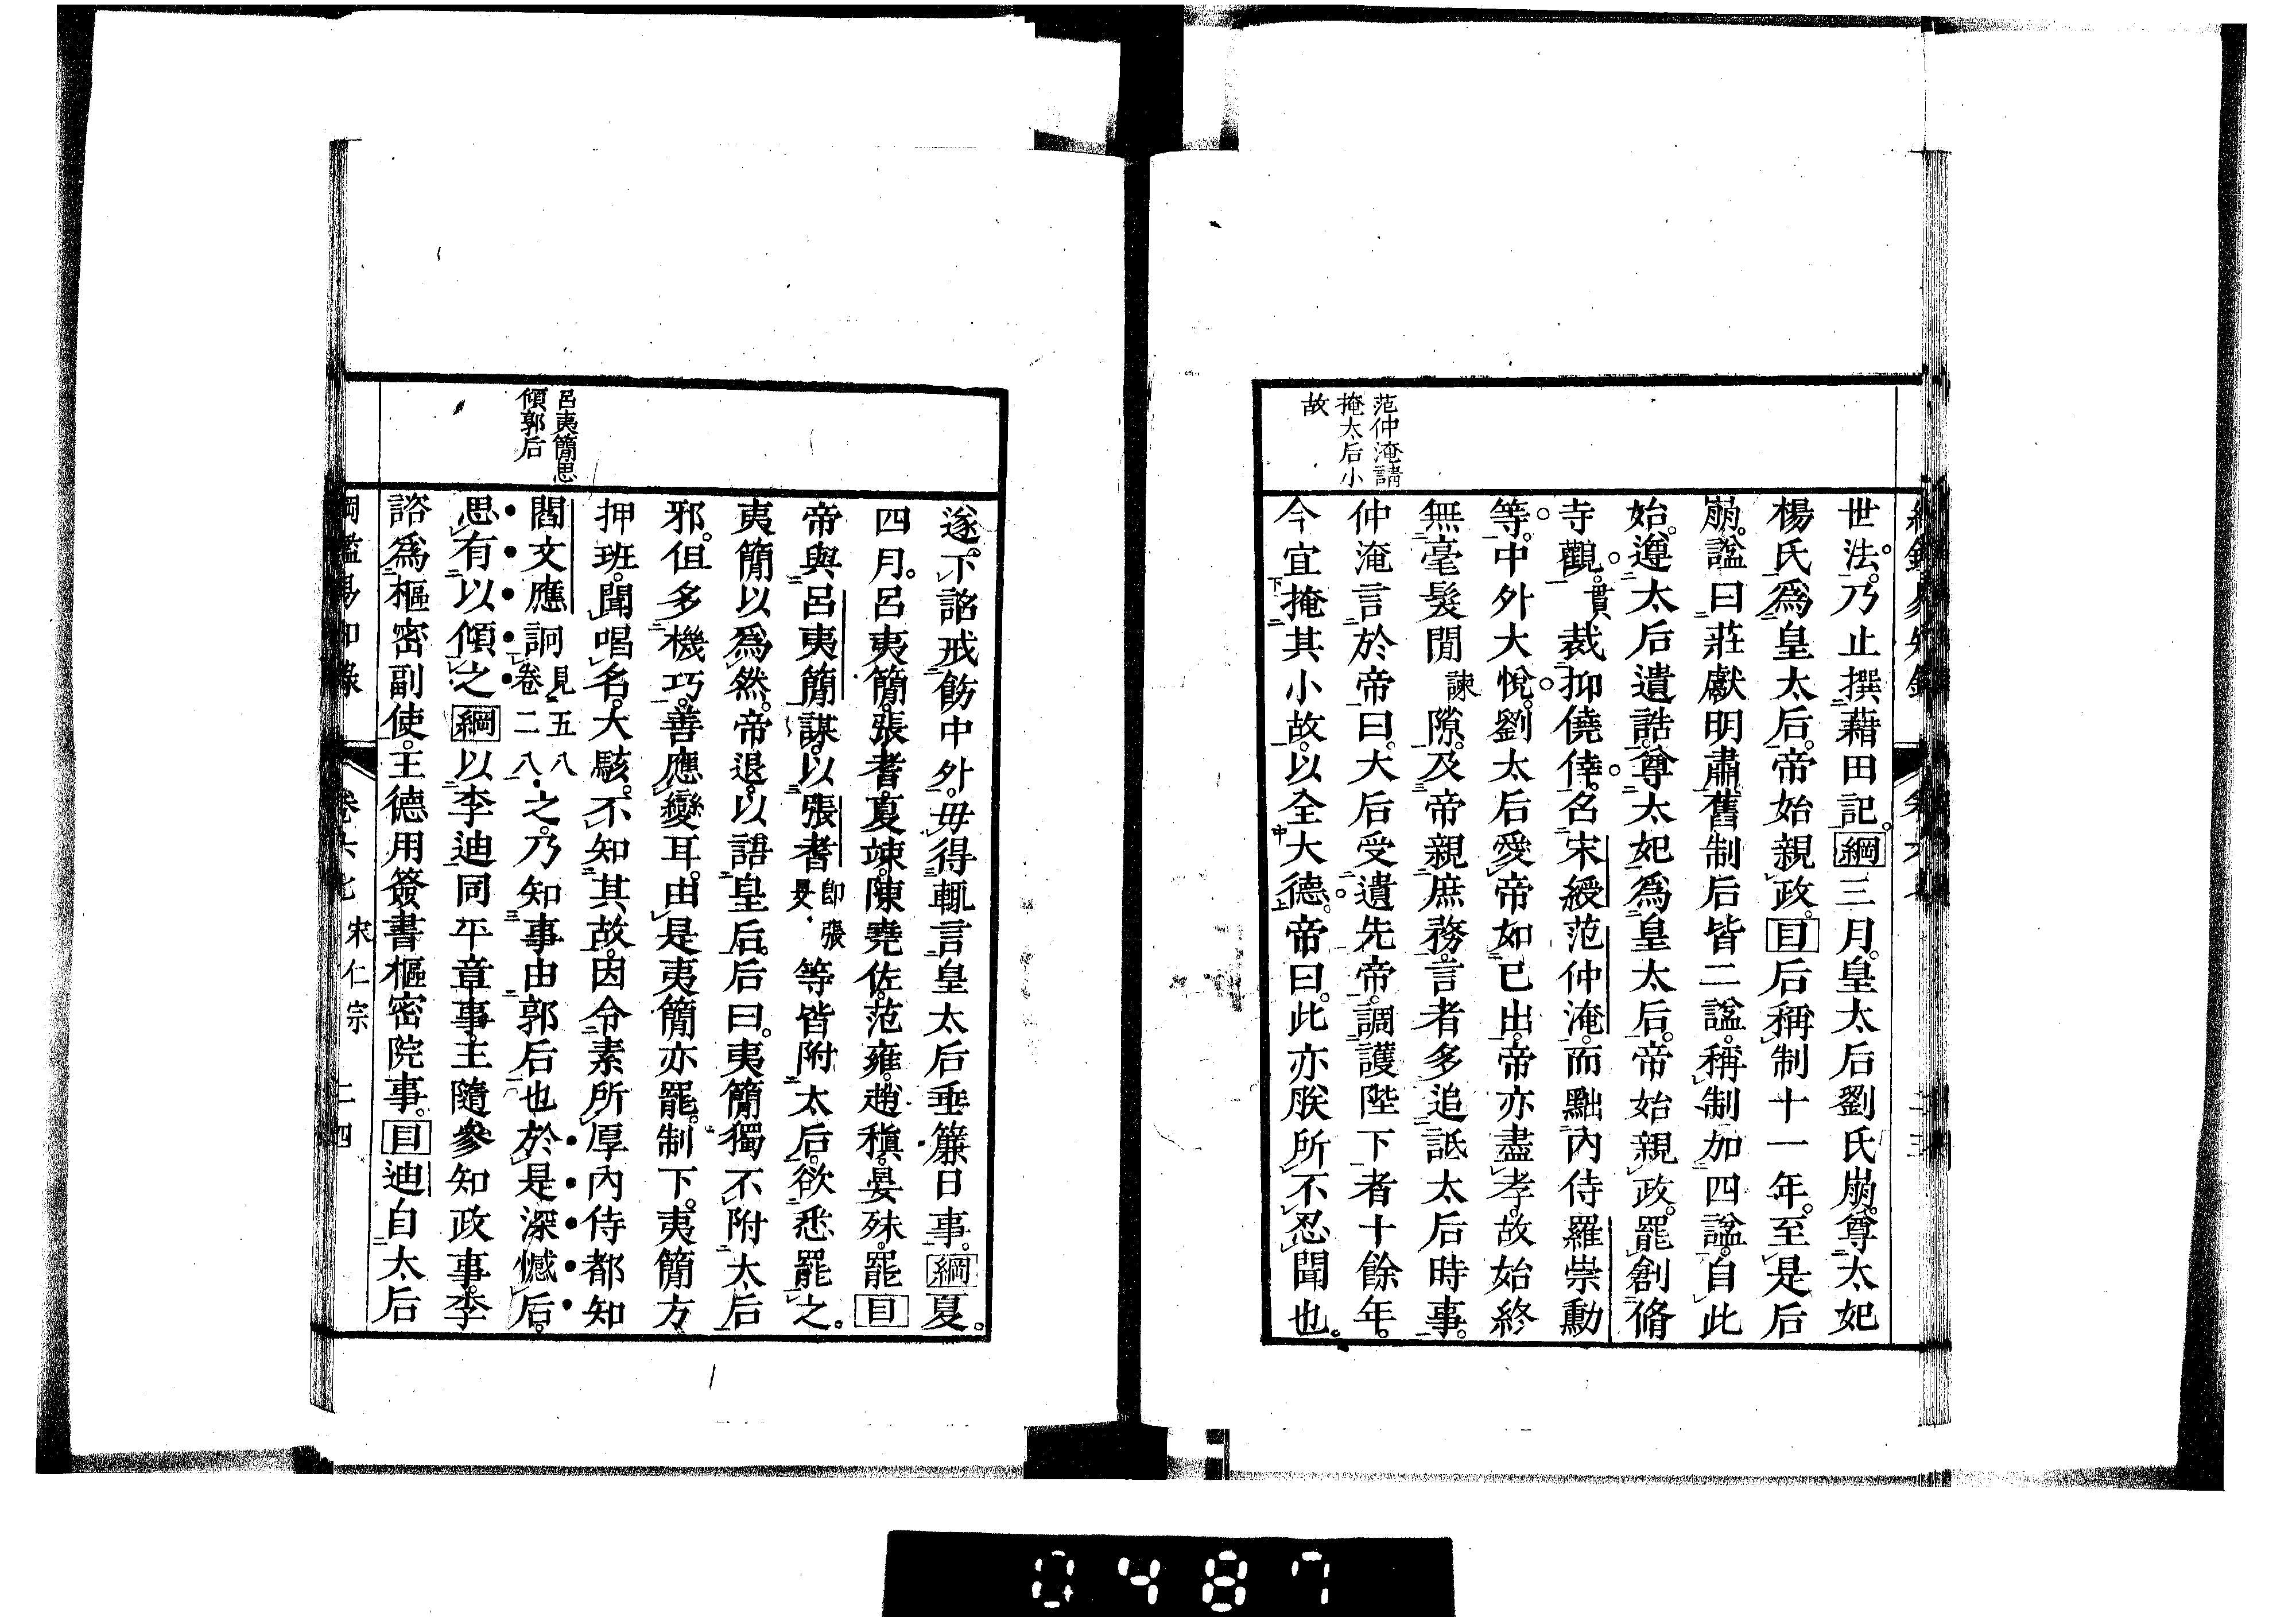 范仲淹請
掩太后小
故
世法。乃止撰藉田記。綱三月。皇太后劉氏崩。尊太妃
楊氏爲皇太后。帝始親政。目后稱制十一年。至是后
崩。諡曰莊獻明肅。舊制后皆二諡。稱制加四諡。自此
始。遵太后遺誥。尊太妃爲皇太后。帝始親政。罷創脩
寺觀。貫裁抑僥倖。名宋綬范仲淹。而黜內侍羅崇勳
等。中外大悅。劉太后愛帝如已出。帝亦盡孝。故始終
無毫髮閒諫隙。及帝親庶務。言者多追詆太后時事。
仲淹言於帝曰。大后受遺先帝。調護陛下者十餘年。
今宜掩其小故。以全大德。帝曰。此亦朕所不忍聞也。
遂下詔戒飭中外。毋得輒言皇太后垂簾日事。綱夏。
四月。呂夷簡。張耆。夏竦。陳堯佐。范雍。趙稹。晏殊。罷目
帝與呂夷簡謀。以張耆卽張旻等皆附太后。欲悉罷之。
夷簡以爲然。帝退。以語皇后。后曰。夷簡獨不附太后
邪。但多機巧。善應變耳。由是夷簡亦罷。制下。夷簡方
押班。聞唱名。大駭。不知其故。因令素所厚內侍都知
閻文應詗見五八卷二八之。乃知事由郭后也。於是深憾后。
思有以傾之綱以李迪同平章事。王隨參知政事。李
諮爲樞密副使。王德用簽書樞密院事。目迪自太后
呂夷簡思
傾郭后
綱鑑易知錄 卷六七 宋仁宗 二四